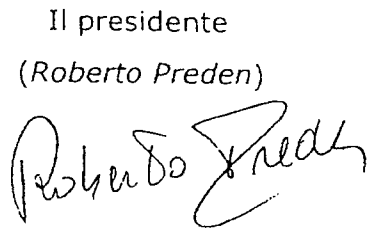 Il presidente
(Roberto Preden)
Roberto Preden